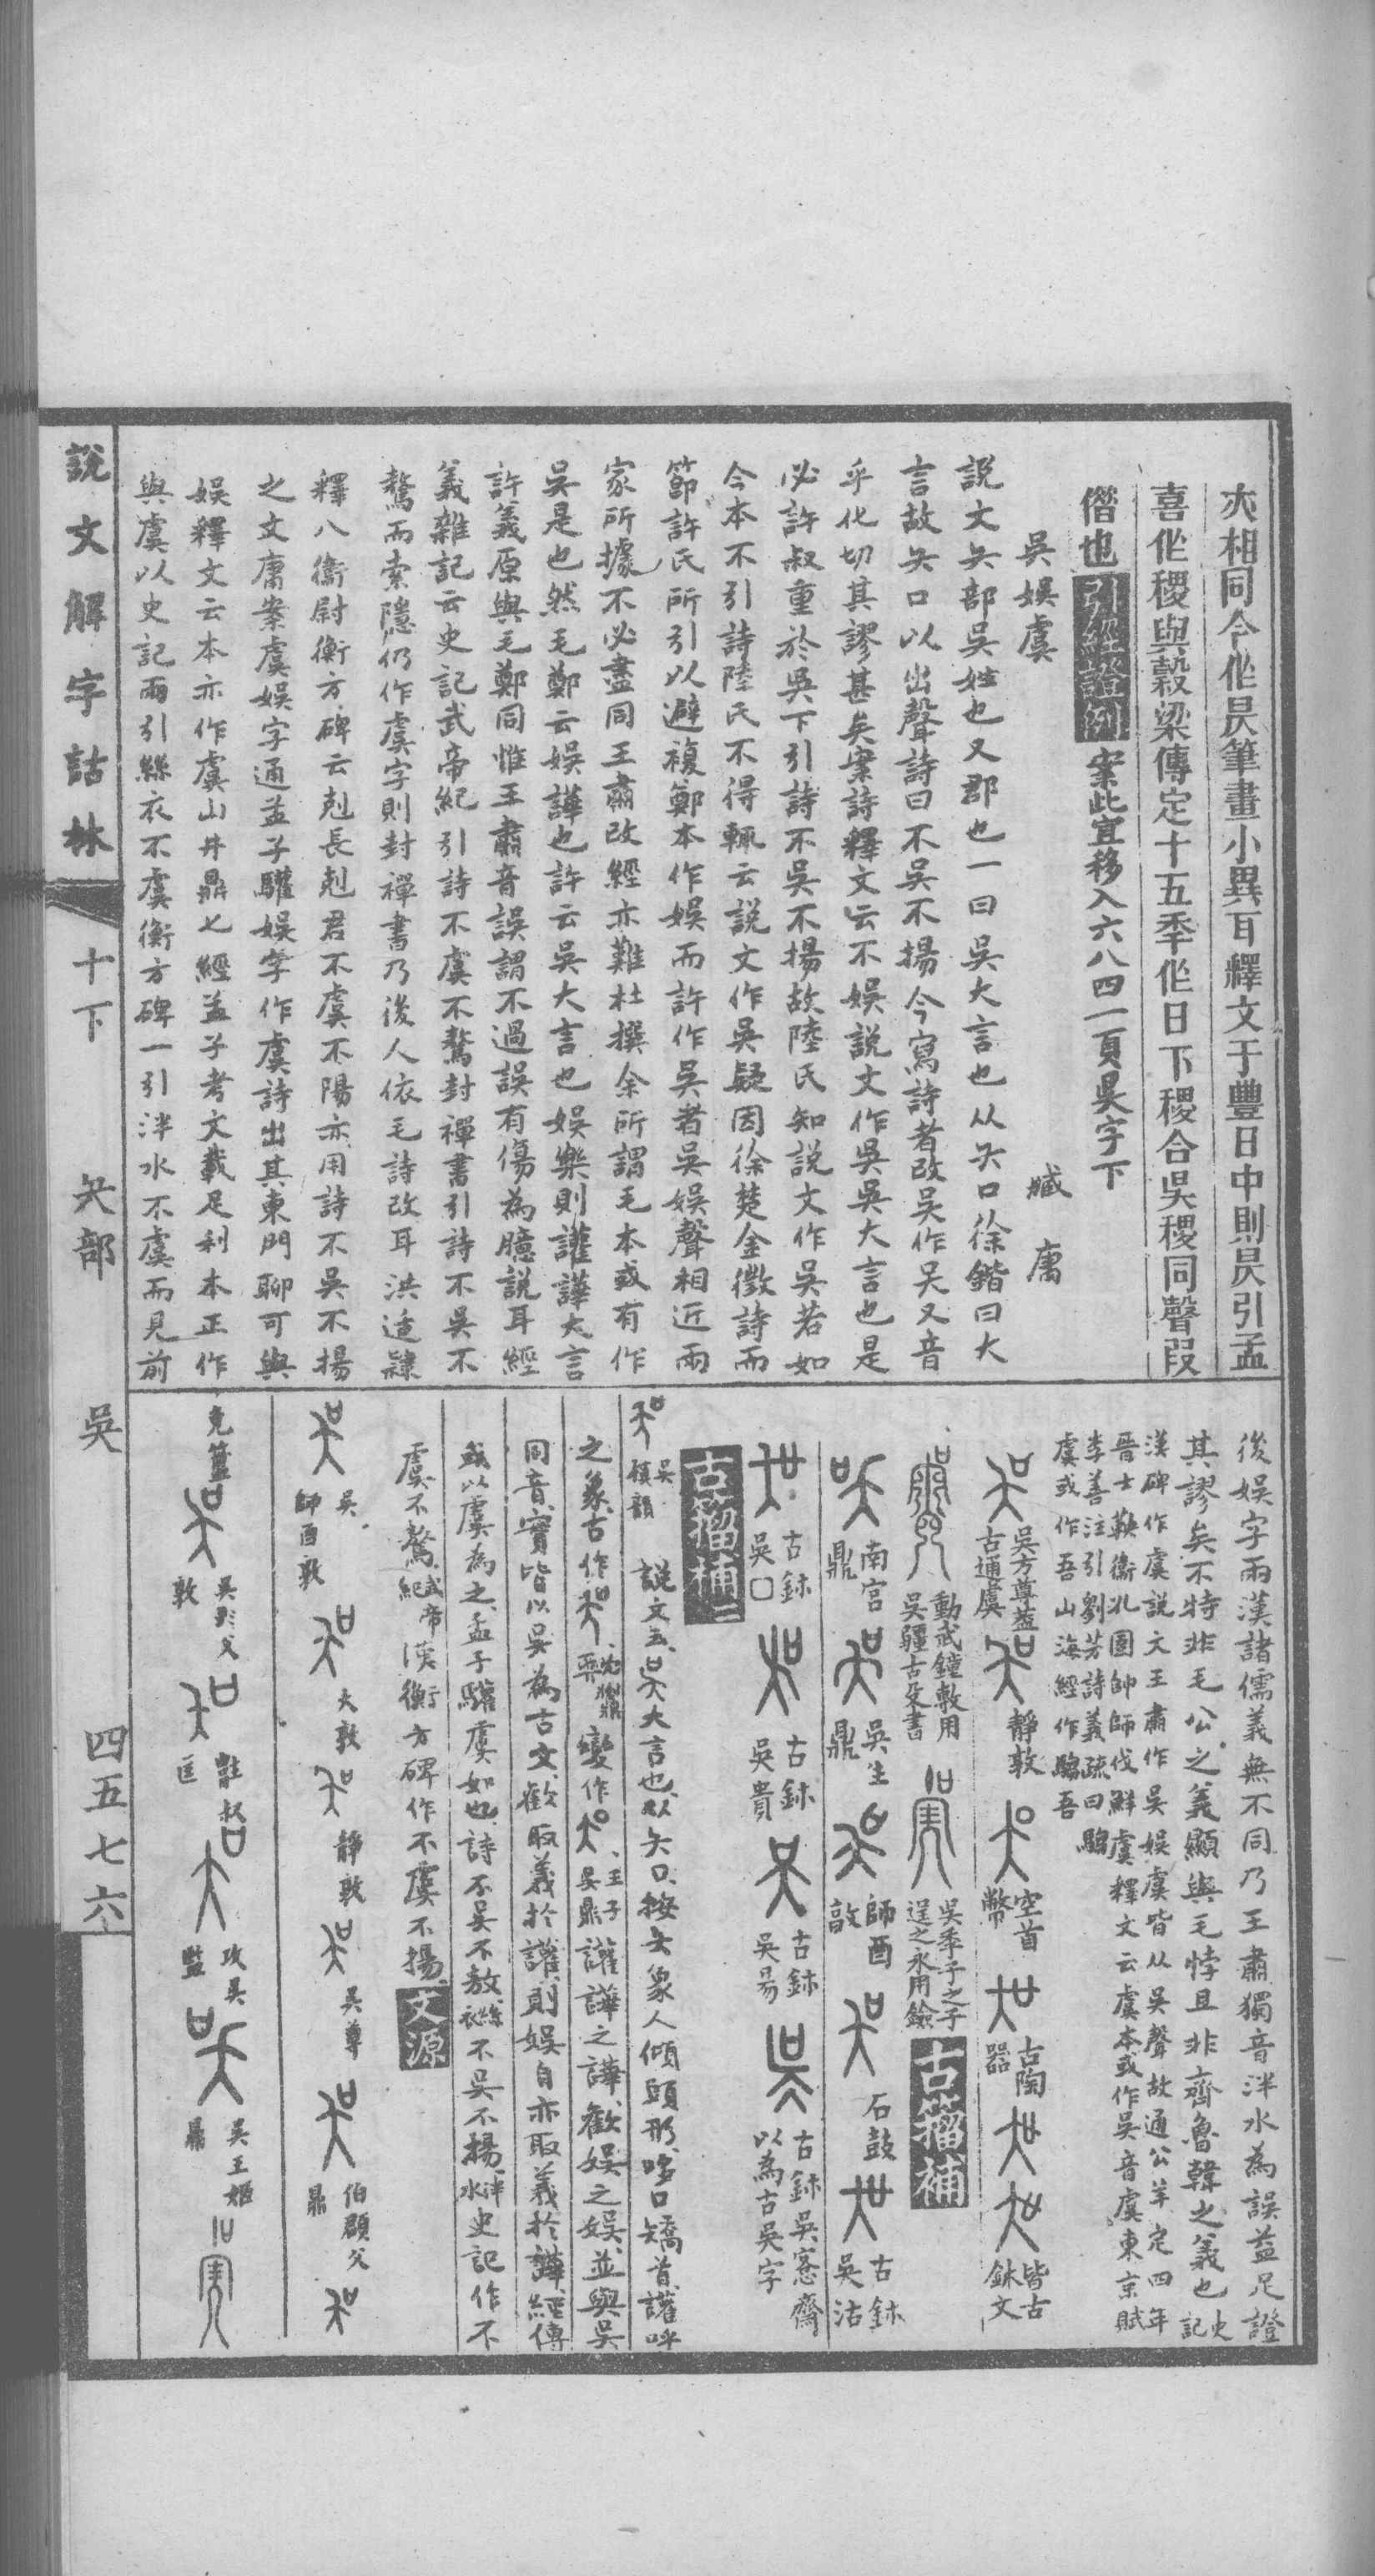 夾相同今作昃筆畫小異耳釋文于豐日中則昃引孟
喜作稷與穀梁傳定十五年作日下稷合吳稷同聲叚
偕也引經證例案此宜移入六八四一頁昃字下
吳娛虞 臧庸
說文夨部吳姓也又郡也一曰吳大言也从夨口徐鍇曰大
言故夨口以出聲詩曰不吳不揚今寫詩者改吳作吴又音
乎化切其謬甚矣案詩釋文云不娛說文作吳吳大言也是
必許叔重於吳下引詩不吳不揚故陸氏知說文作吳若如
今本不引詩陸氏不得輒云說文作吳疑因徐楚金徵詩而
節許氏所引以避複鄭本作娛而許作吳者吳娛聲相近兩
家所據不必盡同王肅改經亦難杜撰余所謂毛本或有作
吳是也然毛鄭云娛譁也許云吳大言也娛樂則讙譁大言
許義原與毛鄭同惟王肅音誤謂不過誤有傷為臆說耳經
義雜記云史記武帝紀引詩不虞不驁封禪書引詩不吳不
驁而索隱仍作虞字則封禪書乃後人依毛詩改耳洪适隸
釋八衞尉衡方碑云剋長剋君不虞不陽亦用詩不吳不揚
之文庸案虞娛字通孟子驩娛字作虞詩出其東門聊可與
娛釋文云本亦作虞山井鼎七經孟子考文載足利本正作
與虞以史記兩引絲衣不虞衡方碑一引泮水不虞而見前
後娛字兩漢諸儒義無不同乃王肅獨音泮水為誤益足證
其謬矣不特非毛公之義顯與毛悖且非齊魯韓之義也史記
漢碑作虞說文王肅作吳娛虞皆从吳聲故通公羊定四年
晉士鞅衞孔圄帥師伐鮮虞釋文云虞本或作吳音虞東京賦
李善注引劉芳詩義疏曰騶
虞或作吾山海經作騶吾
吳方尊蓋古通虞 靜敦 空首幣 古陶器 皆古鉥文
動武鐘敷用吳疆古文書 吳季子之子逞之永用鎗 古籀補
南宮鼎 吳生鼎 師酉敦 石鼓 古鉥吳沽
古鉥吳□ 古鉥吳貴 古鉥吳昜 古鉥吳愙齋以為古吳字
古籀補二
吳模韻 說文云吳大言也从夨口按夨象人傾頭形哆口矯首讙呼
之象古作 變作 王子吳鼎讙譁之譁歡娛之娛並與吳
同音實皆以吳為古文歡取義於讙則娛自亦取義於譁經傳
或以虞為之孟子驩虞如也詩不吳不敖絲衣不吳不揚泮水史記作不
虞不驁武帝紀漢衡方碑作不虞不揚文源
吳師酉敦 大敦 靜敦 吳尊 伯頵父鼎
克簋 吳彭父敦 叔匡 攻吳監 吳王姬鼎
說文解字詁林 十下 夨部 吳 四五七六